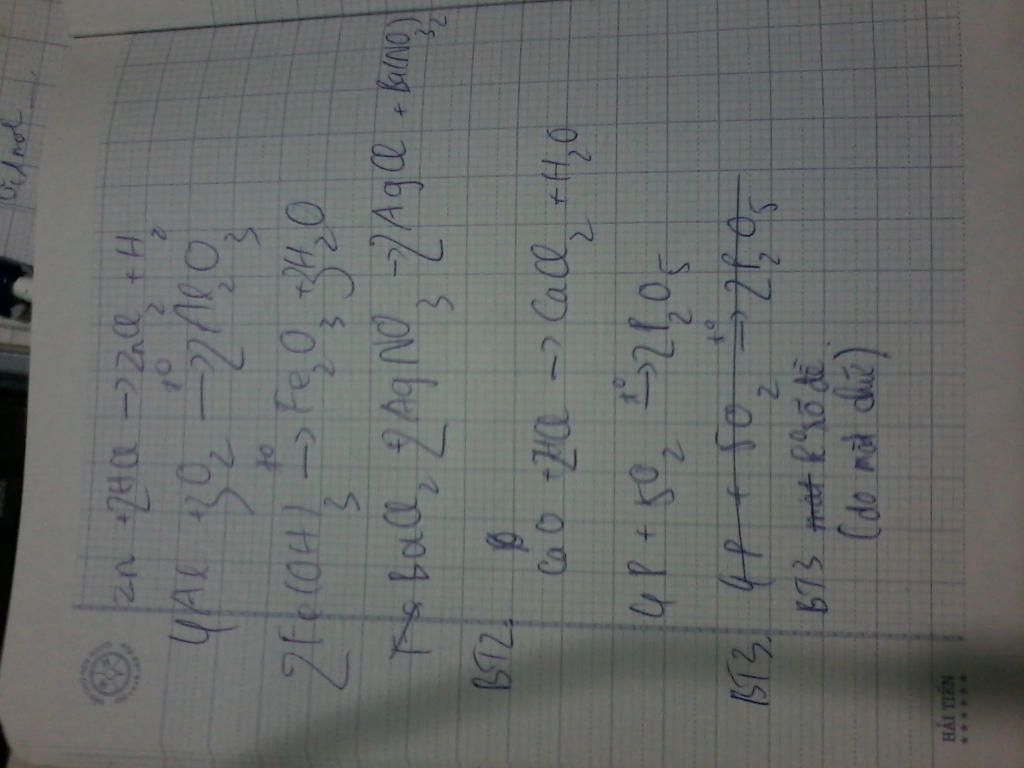 Zn + 2HCl → ZnCl2 + H2
4Al + 3O2 t° → 2Al2O3
2Fe(OH)3 t° → Fe2O3 + 3H2O
BaCl2 + 2AgNO3 → 2AgCl + Ba(NO3)2
BT2.
CaO + 2HCl → CaCl2 + H2O
4P + 5O2 t° → 2P2O5
BT3. 4P + 5O2 t° → 2P2O5
BT3
HẢI TIẾN